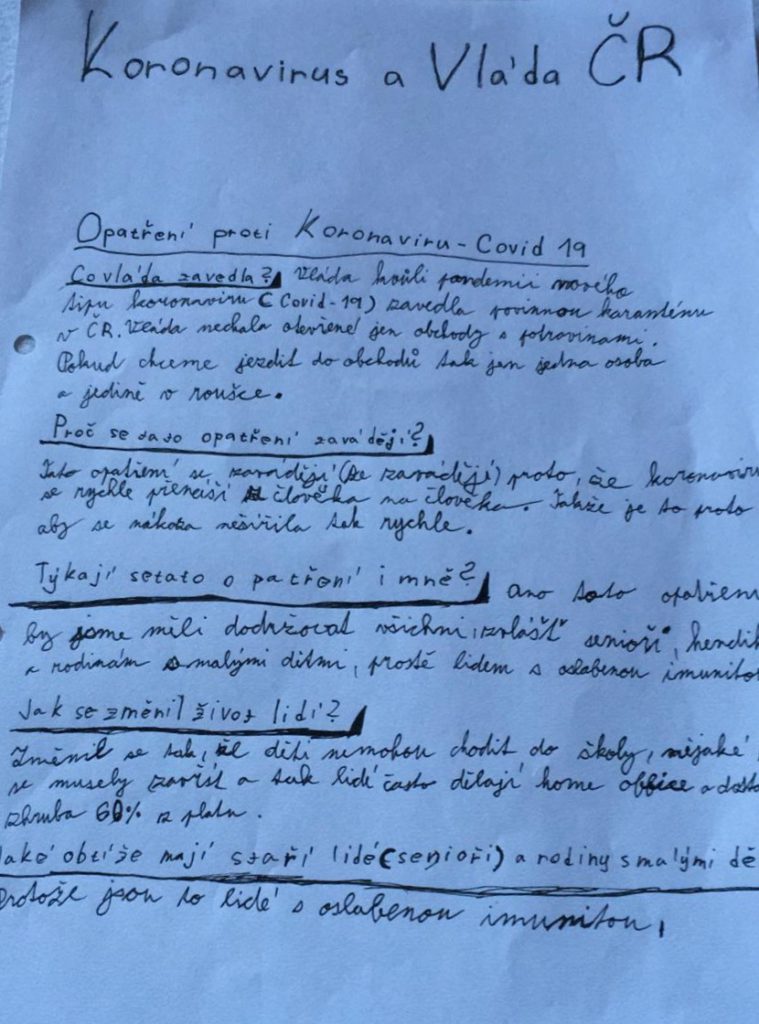 Koronavirus a Vláda ČR
Opatření proti Koronaviru - Covid 19
Co vláda zavedla? Vláda kvůli pandemii nového
tipu koronaviru (Covid-19) zavedla povinnou karanténu
v ČR. Vláda nechala otevřené jen obchody s potravinami.
Pokud chceme jezdit do obchodů tak jen jedna osoba
a jedině v roušce.
Proč se tato opatření zavádějí?
Tato opatření se zavádějí (se zavádějí) proto, že koronaviru
se rychle přenáší z člověka na člověka. Takže je to proto
aby se nákaza nešířila tak rychle.
Týkají se tato opatření i mně? Ano tato opatření
by jsme měli dodržovat všichni, zvlášť senioři, hendik
a rodinám s malými dítmi, prostě lidem s oslabenou imunitou
Jak se změnil život lidí?
Změnil se tak, že děti nemohou chodit do školy, nějaké
se musely zavřít a tak lidé často dělají home office a dosta
zhruba 60% z platu.
Jaké obtíže mají staří lidé (senioři) a rodiny s malými dě
Protože jsou to lidé s oslabenou imunitou,